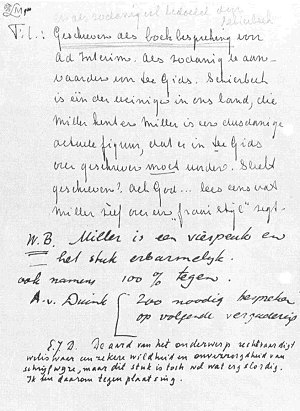 en als zodanig wel bedoeld door
Schierbeek
Til.: Geschreven als boekbespreking voor
Ad Interim. Als zodanig te aan-
vaarden voor De Gids. Schierbeek
is één der weinigen in ons land, die
Miller kent en Miller is een dusdanige
actuele figuur, dat er in De Gids
over geschreven moet worden. Slecht
geschreven? Ach God... lees eens wat
Miller zelf over een „fraaie stijl" zegt.
W.B. Miller is een viespeuk en
het stuk erbarmelijk.
ook namens 100% tegen.
A.v. Duink [ zoo noodig bespreken
op volgende vergadering
E.J.D. De aard van het onderwerp rechtvaardigt
weliswaar een zekere wildheid en onverzorgdheid van
schrijfwijze, maar dit stuk is toch wel wat erg slordig.
Ik ben daarom tegen plaatsing.